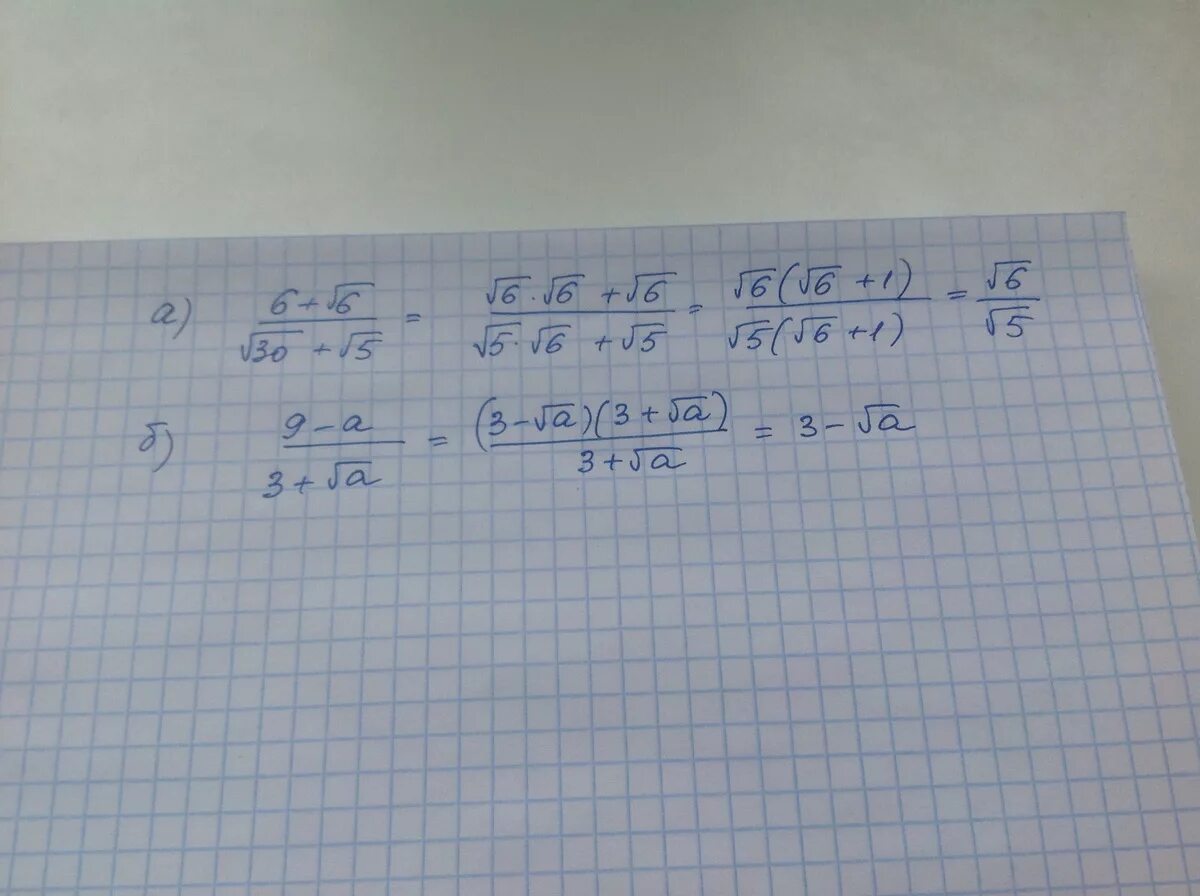 а) (6+√6)/(√30+√5) = (√6·√6+√6)/(√5·√6+√5) = (√6(√6+1))/(√5(√6+1)) = √6/√5
б) (9-a)/(3+√a) = ((3-√a)(3+√a))/(3+√a) = 3-√a